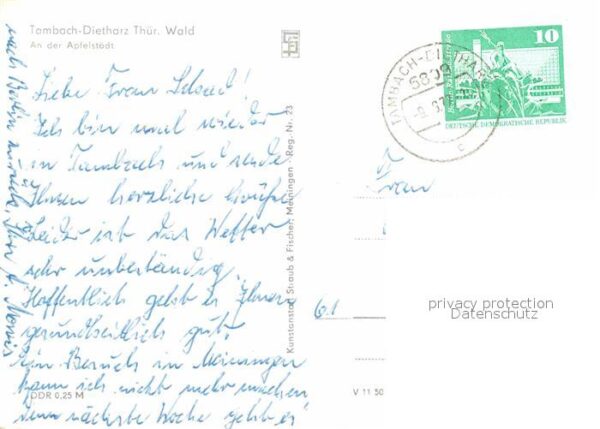 Tambach-Dietharz Thür. Wald
An der Apfelstädt
Liebe Frau Schad!
Ich bin mal wieder
in Tambach und sende
Ihnen herzliche Grüße
Leider ist das Wetter
sehr unbeständig
Hoffentlich geht es Ihnen
gesundheitlich gut.
Ein Besuch in Meiningen
kann ich nicht mehr machen
denn nächste Woche geht es
nach Berlin zurück, Ihr
DDR 0,25 M
Kunstanstalt Straub & Fischer, Meiningen · Reg.-Nr. 23
V 11 50
TAMBACH-DIETHARZ
5809
c
10
DEUTSCHE DEMOKRATISCHE REPUBLIK
Frau
61
privacy protection
Datenschutz